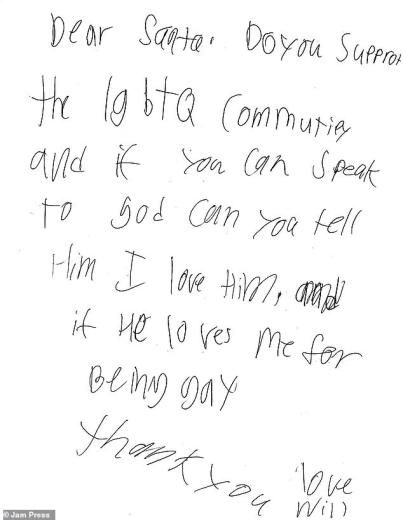 Dear Santa. Do you Support
the lgbtQ Commutiey
and if you can speak
to god can you tell
Him I love Him, and
if He loves me for
Being gay
Thank you love
Will
© Jam Press